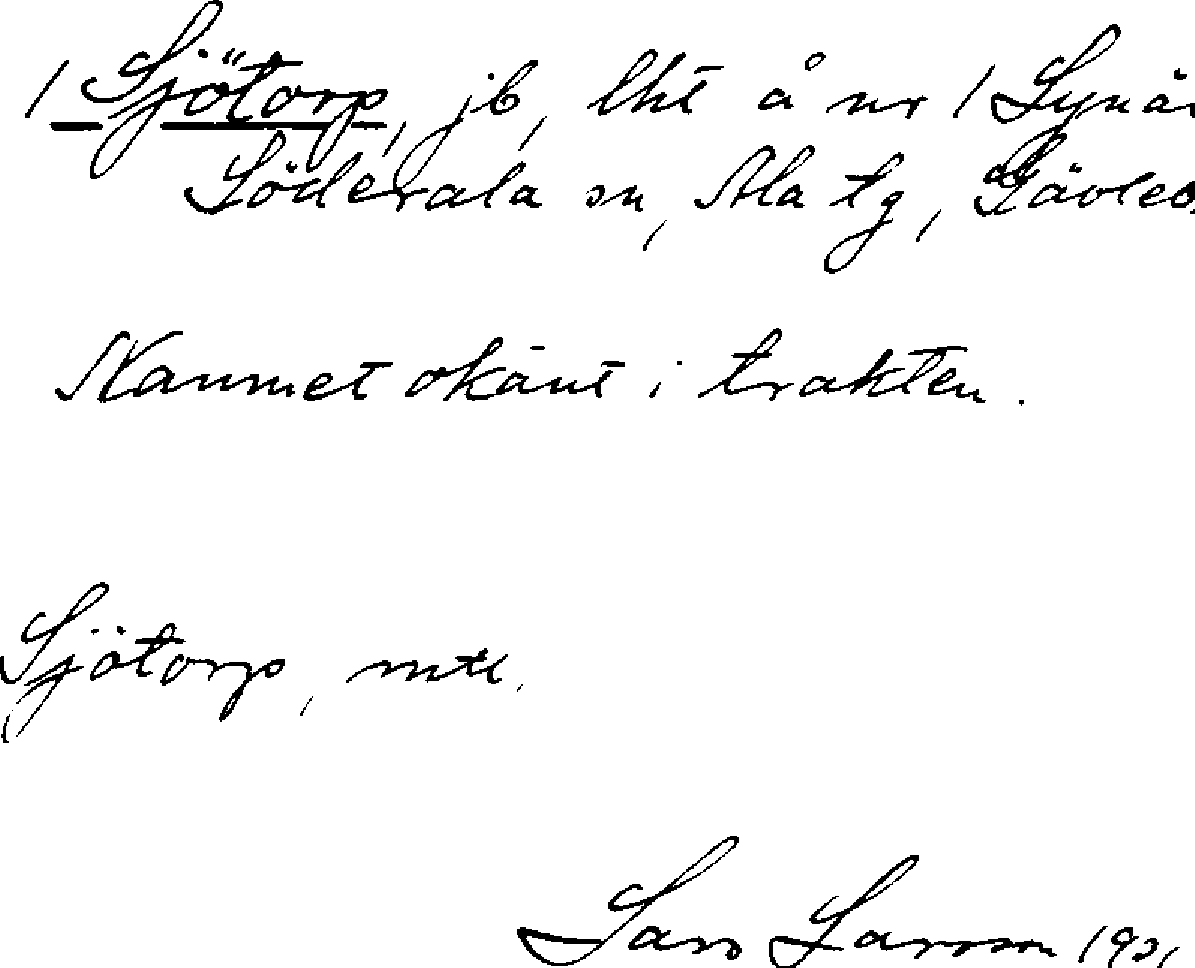 1 Sjötorp, jb, lht å nr 1 Lynä
Söderala sn, Ala tg, Gävleb
Namnet okänt i trakten.
Sjötorp, mtl.
Lars Larsson 1921